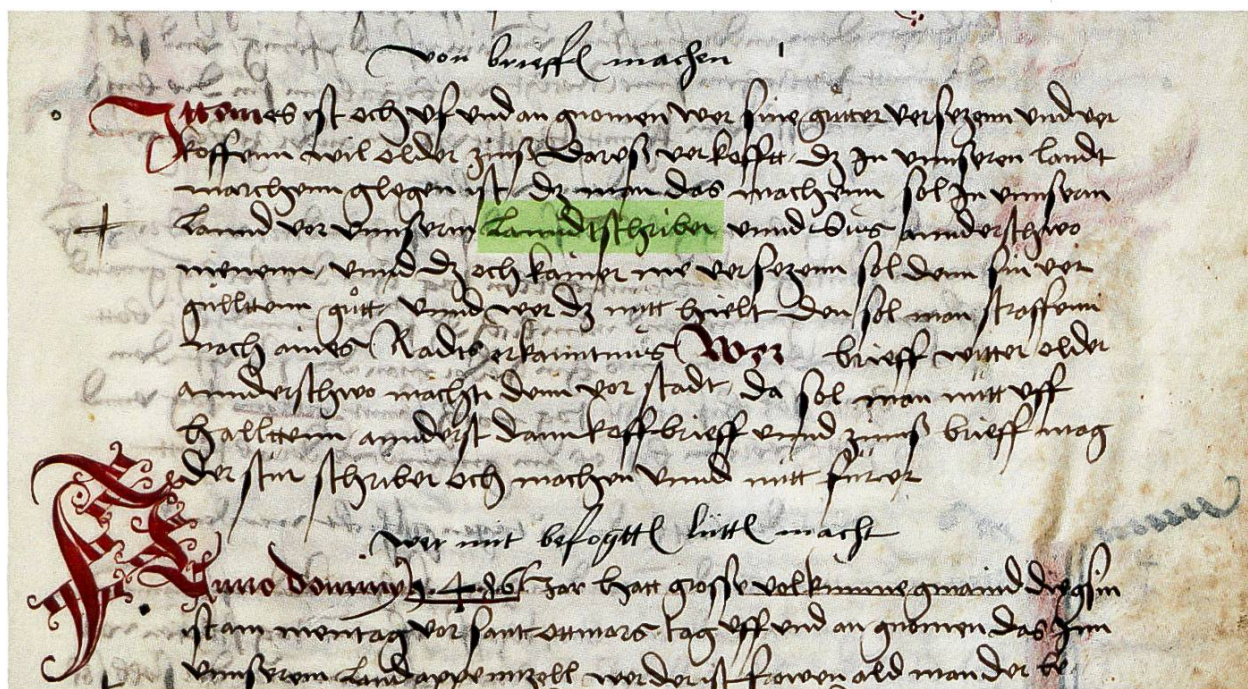 von brieffe machen
Ittem es ist och vf vnd an gnomen wer sine gütter versezenn vnd ver
koffenn wil older zinss daruss verkofftt dz In vnnseren landt
marchenn glegen ist dz man das machenn sol In vnnserm
lannd vor vnnserm lanndtschriber vnnd vss annderschwo
nienenn vnnd dz och kainer me versezenn sol denn sin ver
güllttem gůtt vnnd wer dz nytt hielt den sol man straffenn
nach aines Radts erkanntnus Wer brieff witter older
annderschwo machti denn vor stadt da sol man nütt vff
halltenn annderst dann koffbrieff vnnd zinss brieff mag
der sin schriber och machen vnnd nütt fürer
wer mit befogtte lütte macht
Anno Dominy 1.4.86 Jar hatt grosse volkumne gmaind die gsin
ist am mentag vor sant ottmars tag vff vnd an gnomen das Jnn
vnnserem land appennzell wer der ist frowen ald man der